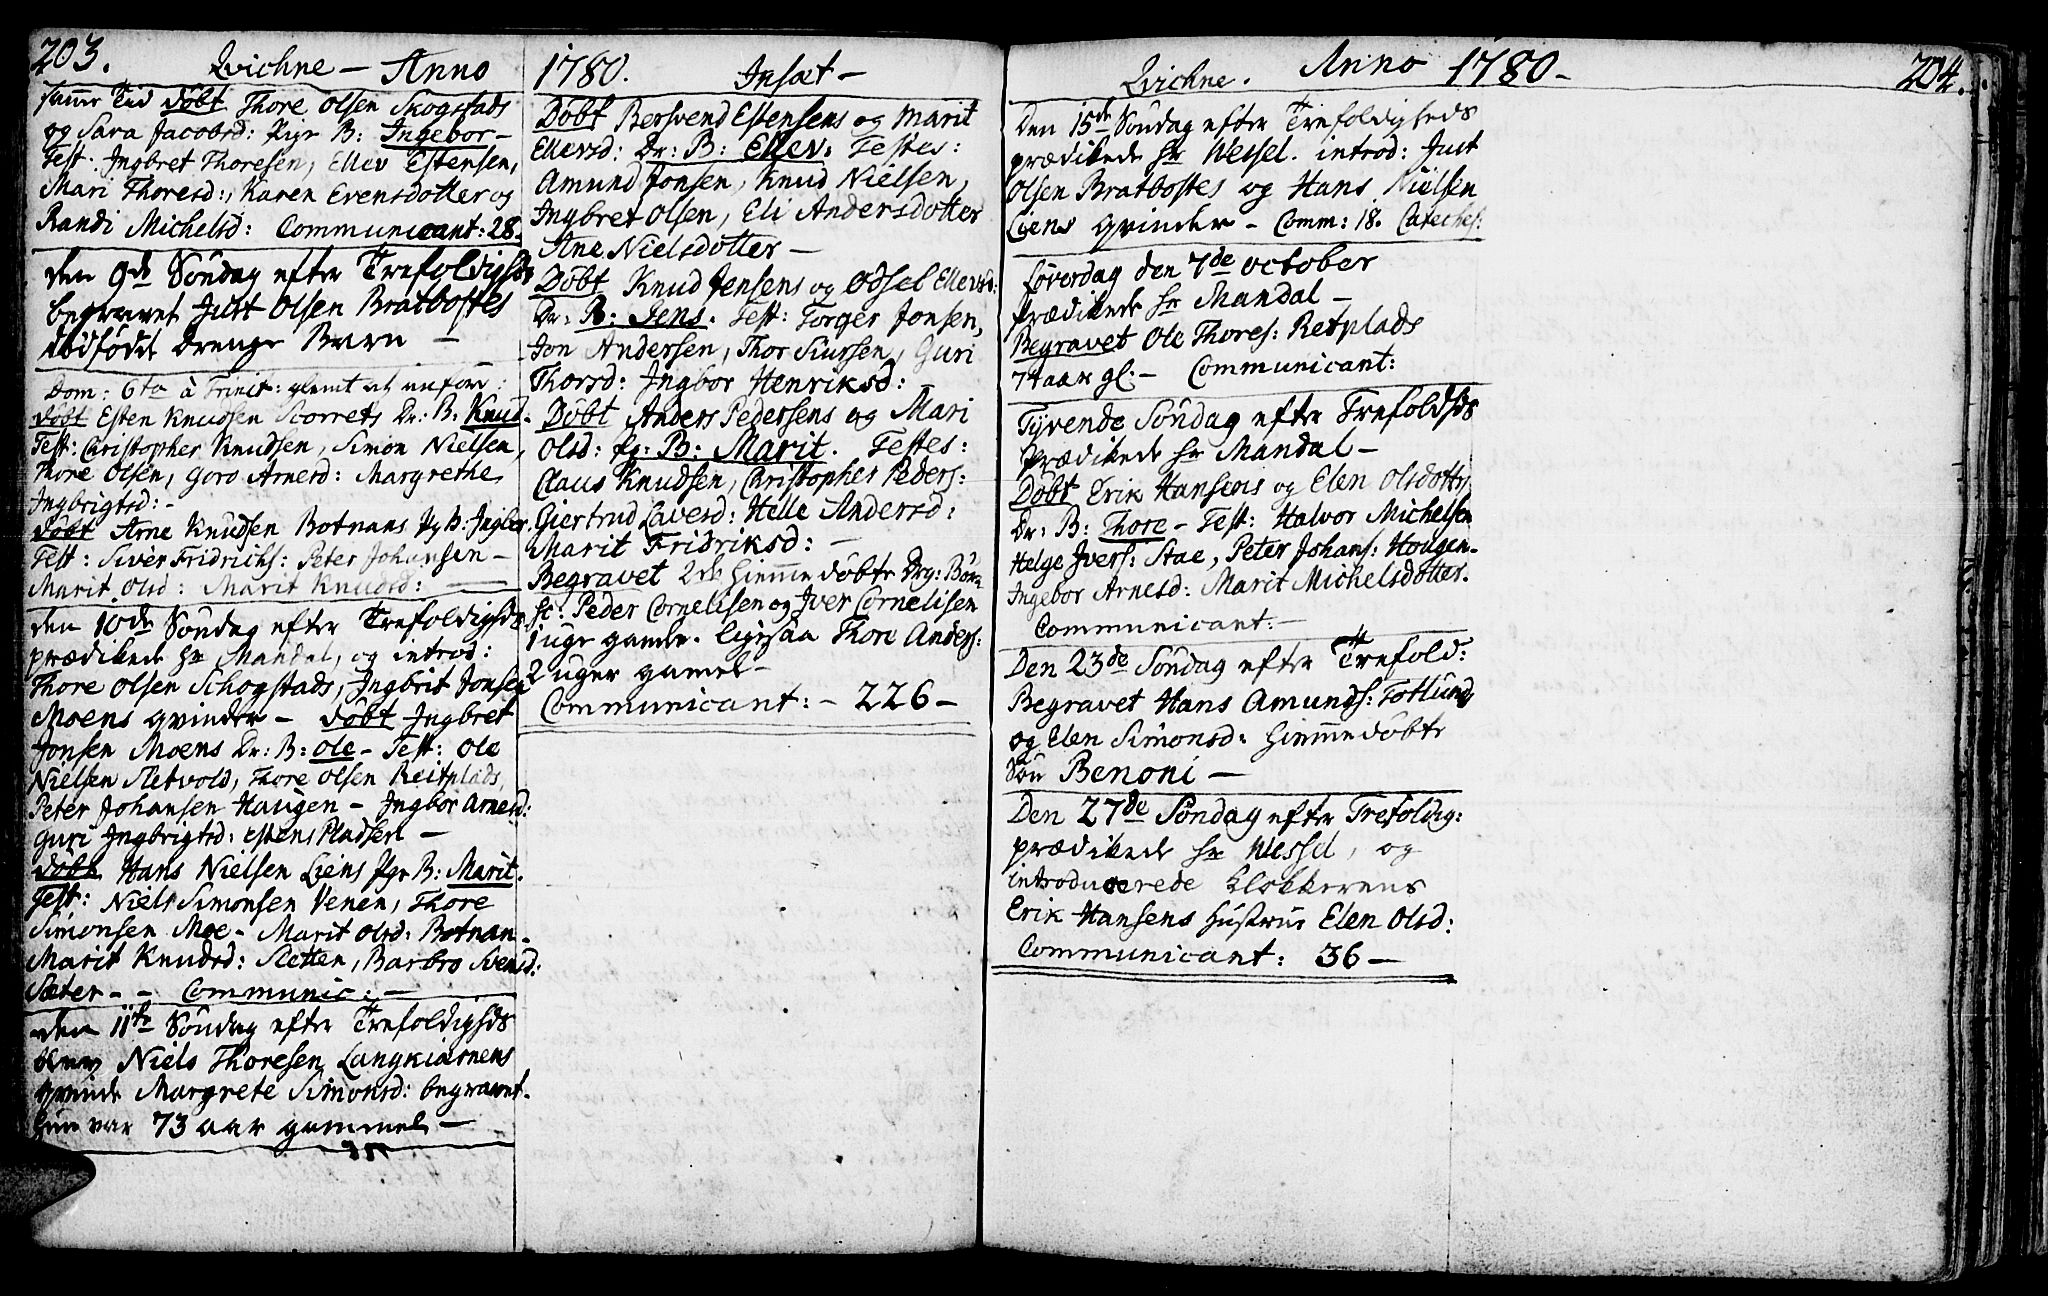 203. Qvichne – Anno
samme Tid døbt Thore Olsen Skogstads
og Sara Jacobsd: Pige B: Ingebor –
Test: Ingbret Thoresen, Ellev Estensen,
Mari Thoresd:, Karen Evensdotter og
Randi Michelsd: Communicant: 28.
den 9de Søndag efter Trefoldighds
begravet Just Olsen Bratbostes
dødfødde Drenge Barn –
Dom: 6ta à Trinit: glemt at anføre:
døbt Esten Knudsen Scorrets Dr: B. Knud.
Test: Christopher Knudsen, Simon Nielsen,
Thore Olsen, Goro Arnesd: Margrethe
Ingbrigtsd: –
døbt Arne Knudsen Botnans Pg B: Ingbor.
Test: Siver Fridrichs: Peter Johansen –
Marit Olsd: Marit Knudsd: –
den 10de Søndag efter Trefoldighds
prædikede Hr Mandal, og introd:
Thore Olsen Schogstads, Ingbrit Jonsen
Moens qvinder – døbt Ingbret
Jonsen Moens Dr: B: Ole – Test: Ole
Nielsen Sletvold, Thore Olsen Reitplads,
Peter Johansen Haugen – Ingbor Arnesd:
Guri Ingbrigtsd: EstensPladsen –
døbt Hans Nielsen Liens Pge B: Marit.
Test: Niels Simonsen Venen, Thore
Simonsen Moe – Marit Olsd: Botnan –
Marit Knudsd: Sletten, Barbro Svensd:
Sæter – – Communic: –
den 11te Søndag efter Trefoldighds
blev Niels Thoresen Langkiærnens
qvinde Margrete Simonsd: begravet.
hun var 73 aar gammel –
1780. Insæt –
Døbt Bersvend Estensens og Marit
Ellevsd: Dr: B: Ellev. Testes:
Amund Jonsen, Knud Nielsen,
Ingbret Olsen, Eli Andersdotter
Ane Nielsdotter –
Døbt Knud Jensens og Odsel Ellevsd:
Dr: B: Jens. Test: Torger Jonsen,
Jon Andersen, Thor Siursen, Guri
Thorsd: Ingbor Henriksd:
Døbt Anders Pedersens og Mari
Olsd: Pg: B: Marit. Testes:
Claus Knudsen, Christopher Peders:
Giertrud Laversd: Helle Andersd:
Marit Fridriksd: –
Begravet 2de hiemmedøbte Drg: Børn
sc: Peder Cornelisen og Iver Cornelisen
1 uge gamle. ligesaa Thore Anders:
2 uger gamel –
Communicant: – 226 –
Qvichne. Anno 1780 – 204.
Den 15de Søndag efter Trefoldigheds
prædikede Hr Wessel. introd: Just
Olsen Bratbostes og Hans Nielsen
Liens qvinder – Comm: 18. Cateches:
Løverdag den 7de october
prædikede Hr Mandal –
Begravet Ole Thores: Retplads
74 aar gl: – Communicant:
Tyvende Søndag efter Trefoldhds
prædikede Hr Mandal –
Døbt Erik Hansens og Elen Olsdotter
Dr: B: Thore – Test: Halvor Michelsen
Helge Ivers: Stae, Peter Johans: Hougen –
Ingebor Arnesd: Marit Michelsdotter.
Communicant: –
Den 23de Søndag efter Trefold:
Begravet Hans Amunds: Totlund
og Elen Simonsd: hiemmedøbte
Søn Benoni –
Den 27de Søndag efter Trefoldig:
prædikede Hr Wessel, og
introducerede klokkerens
Erik Hansens Hustrue Elen Olsd:
Communicant: 36 –